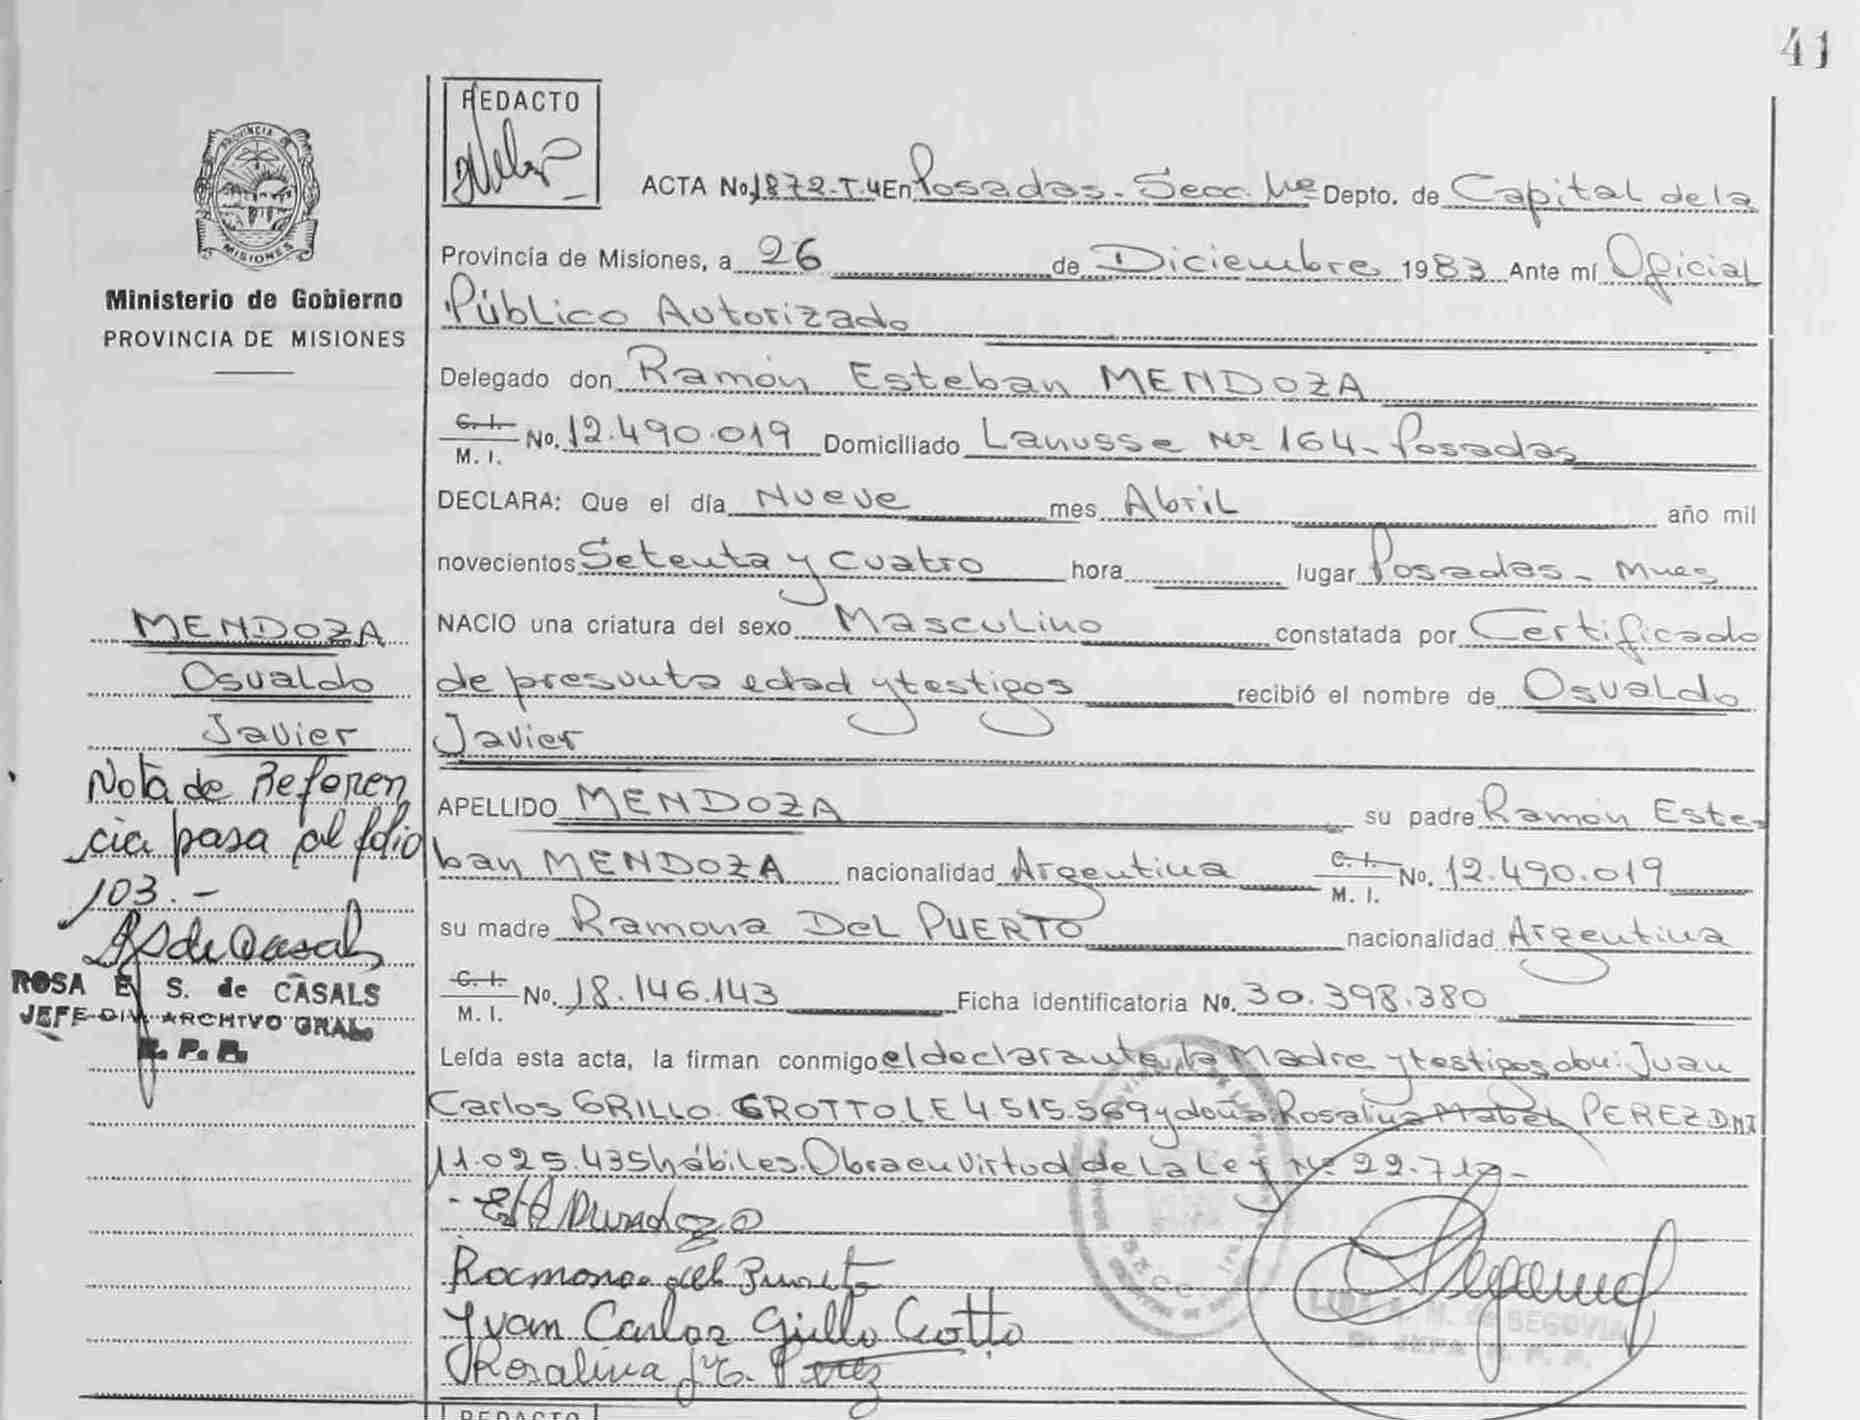 41
REDACTO
ACTA No. 1872-T.4 En Posadas. Secc. Mº Depto. de Capital de la
PROVINCIA DE MISIONES
Ministerio de Gobierno
PROVINCIA DE MISIONES
Provincia de Misiones, a 26 de Diciembre 1983 Ante mí Oficial
Público Autorizado
Delegado don Ramón Esteban MENDOZA
C. I. M. I. No. 12.490.019 Domiciliado Lanusse Nº 164 - Posadas
DECLARA: Que el día Nueve mes Abril año mil
novecientos Setenta y Cuatro hora lugar Posadas - Mnes
NACIO una criatura del sexo Masculino constatada por Certificado
de presunta edad y testigos recibió el nombre de Osvaldo
Javier
APELLIDO MENDOZA su padre Ramón Este-
ban MENDOZA nacionalidad Argentina C. I. M. I. No. 12.490.019
su madre Ramona Del PUERTO nacionalidad Argentina
C. I. M. I. No. 18.146.143 Ficha identificatoria No. 30.398.380
Leída esta acta, la firman conmigo el declarante, la Madre y testigos don: Juan
Carlos GRILLO GROTTO L E 4 515.569 y doña Rosalina Mabel PEREZ D.M.I
11.025.435 hábiles. Obra en virtud de la Ley Nº 22.
Ramona del Puerto
Juan Carlos Grillo Grotto
Rosalina Perez
MENDOZA
Osvaldo
Javier
Nota de Referen
cia pasa al folio
103.-
ROSA E. S. de CASALS
JEFE DIV. ARCHIVO GRAL.
R. P. P.
M. de SEGOVIA
JEFA R. P. P.
REDACTO